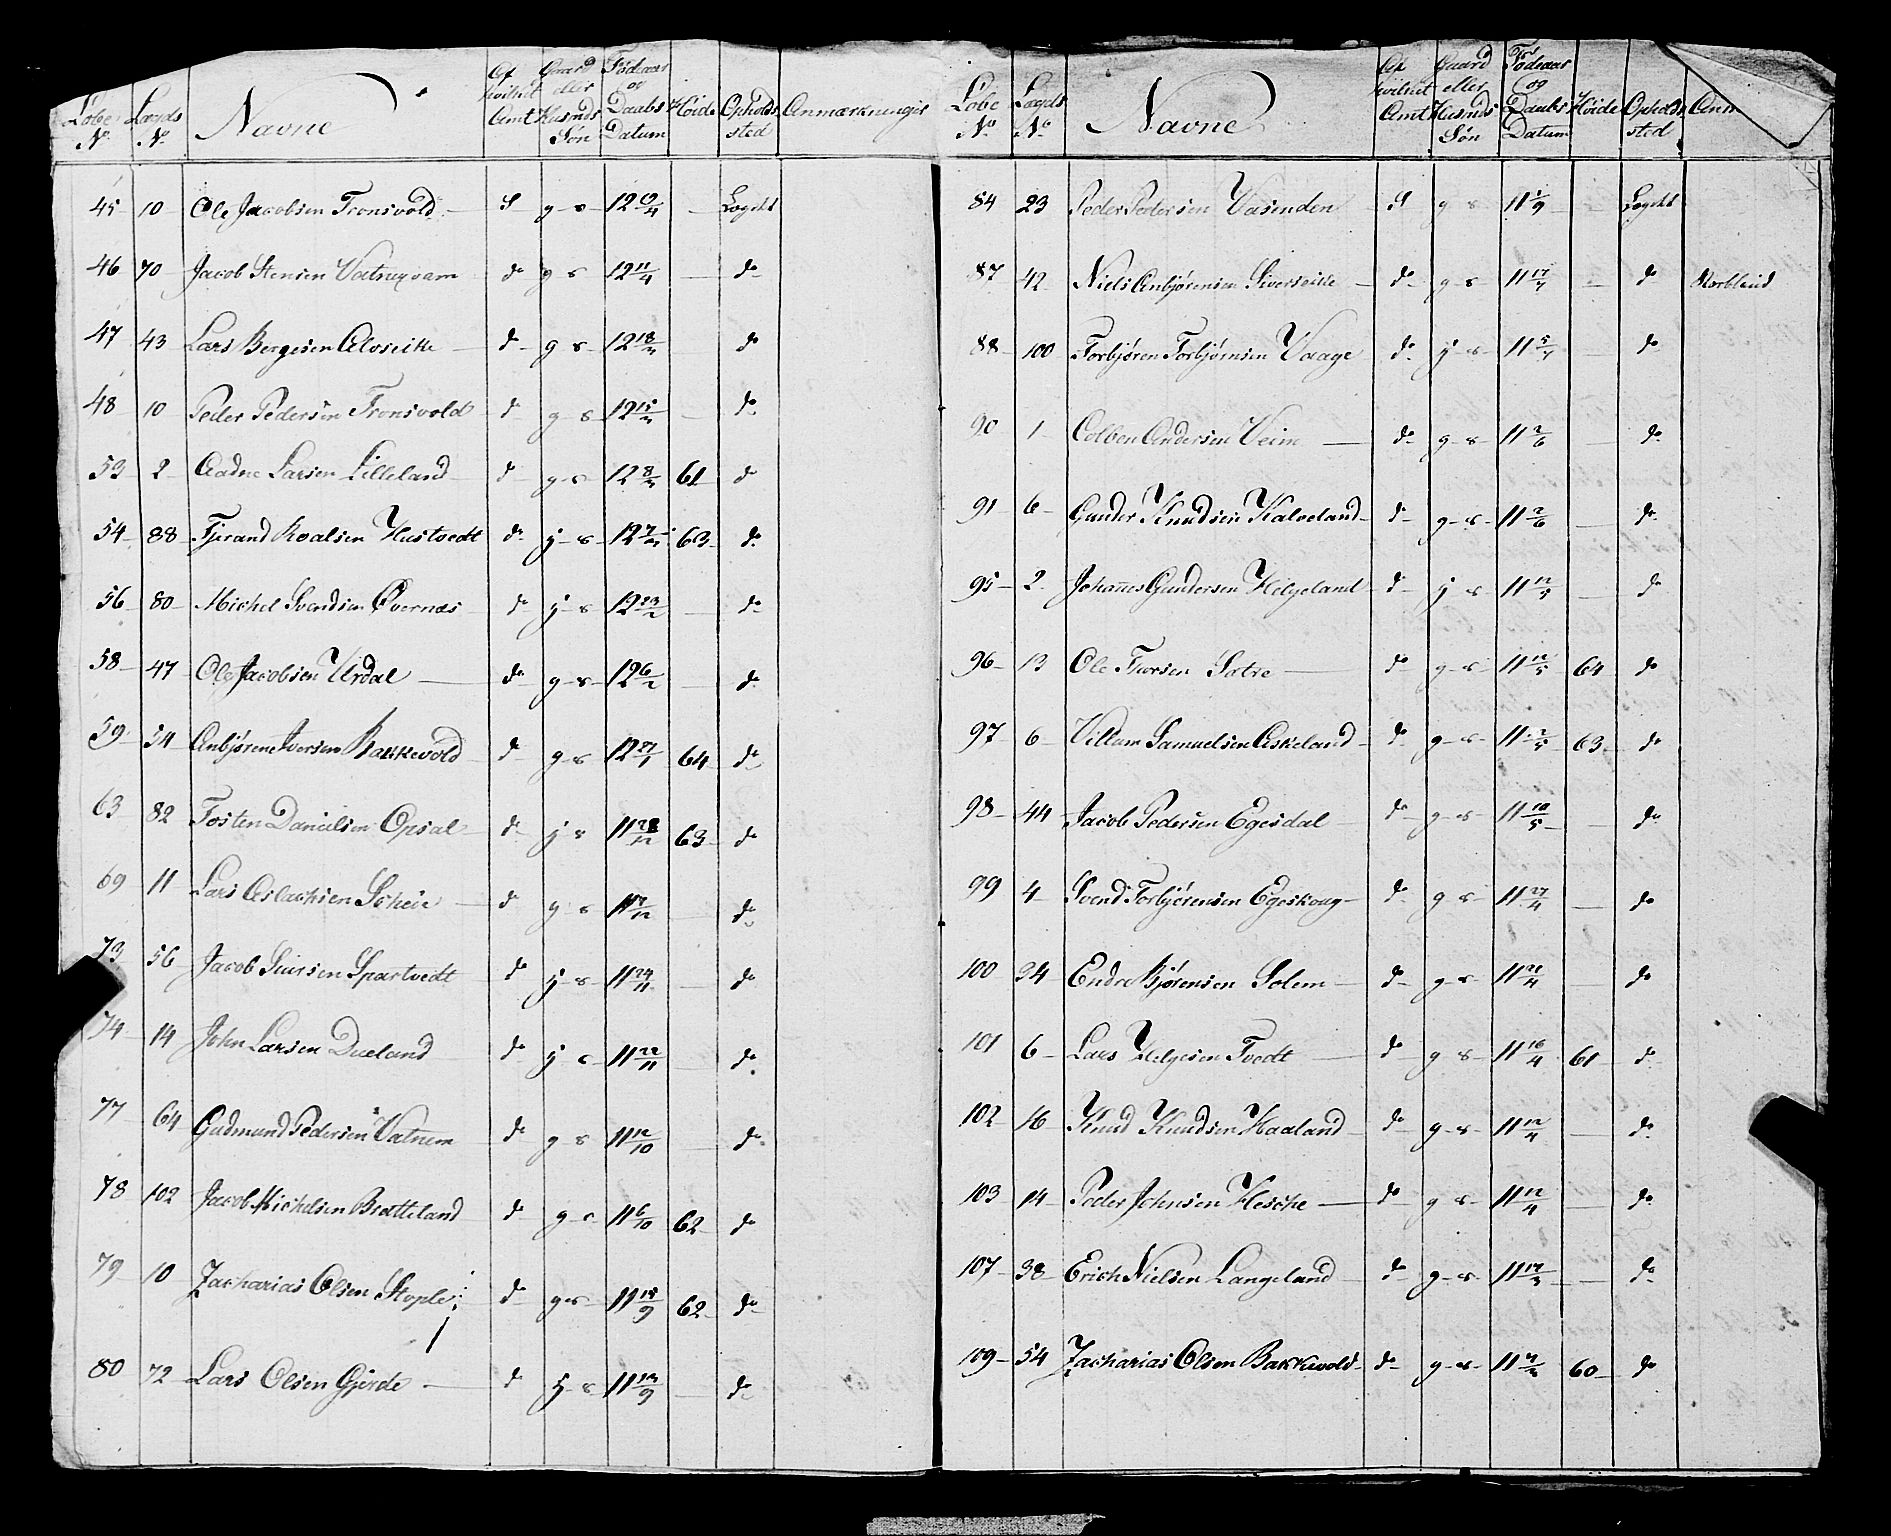 Løbe No Lægds No Navne Af hvilket Amt Gaard eller Husmds Søn Fødeaar og Daabs Datum Høide Opholds sted Anmærkninger
45 10 Ole Jacobsen Tronsvold S g s 12 4 Lægdet
46 70 Jacob Stensen do g s 12 11/4 do
47 43 Lars Bergesen do g s 12 18/3 do
48 10 Peder Pedersen Tronsvold do g s 12 15/3 do
53 2 Aadne Larsen Lilleland do g s 12 8/3 61 do
54 88 Tjerand Roalsen Hustvedt do j s 12 7/3 63 do
56 80 Michel Svendsen Øvernæs do j s 12 23/2 do
58 47 Ole Jacobsen Urdal do g s 12 6/2 do
59 54 Anbjøren Iversen Bakkevold do g s 12 27/1 64 do
63 82 Tosten Danielsen Opsal do j s 11 28/12 63 do
69 11 Lars Aslachsen Scheie do g s 11 7/12 do
73 56 Jacob Spartvedt do j s 11 24/11 do
74 14 John Larsen Dueland do j s 11 22/11 do
77 64 Gudmund Pedersen Vatnem do g s 11 12/10 do
78 102 Jacob Michelsen Bratteland do g s 11 6/10 62 do
79 10 Zacharias Olsen Stople do g s 11 15/9 62 do
80 72 Lars Olsen Gjerde do j s 11 9 do
Løbe No Lægds No Navne Af hvilket Amt Gaard eller Husmds Søn Fødeaar og Daabs Datum Høide Opholds sted Anm
84 23 Peder Pedersen Vasenden S g s 11 1/9 Lægdet
87 42 Niels Anbjørensen do g s 11 17/7 do Stærblind
88 100 Torbjøren Torbjørnsen Vaage do j s 11 5/7 do
90 1 Colben Andersen Veim do g s 11 2/6 do
91 6 Gunder Knudsen Kalveland do g s 11 2/6 do
95 2 Johannes Gundersen Helgeland do j s 11 12/5 do
96 13 Ole Thorsen Sætre do g s 11 12/5 64 do
97 6 Villum Samuelsen Askeland do g s 11 5 63 do
98 44 Jacob Pedersen Egesdal do g s 11 10/5 do
99 4 Svend Torbjørensen Egeskoug do g s 11 27/4 do
100 34 Endre Bjørensen Solem do g s 11 21/4 do
101 6 Lars Helgesen Tvedt do g s 11 16/4 61 do
102 16 Knud Knudsen Haaland do g s 11 12/4 do
103 14 Peder Johnsen Hesche do g s 11 12/4 do
107 38 Erich Nielsen Langeland do g s 11 17/3 do
109 54 Zacharias Olsen Bakkevold do g s 11 3 60 do